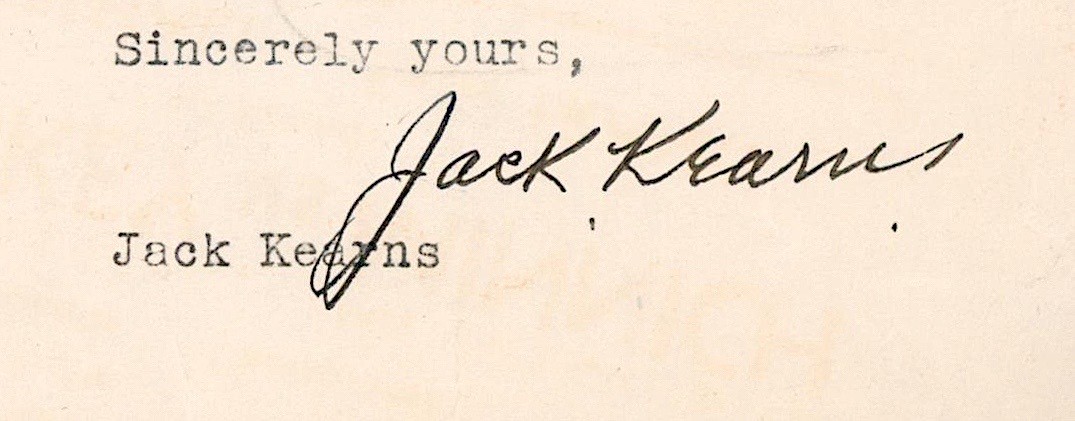 Sincerely yours,
Jack Kearns
Jack Kearns